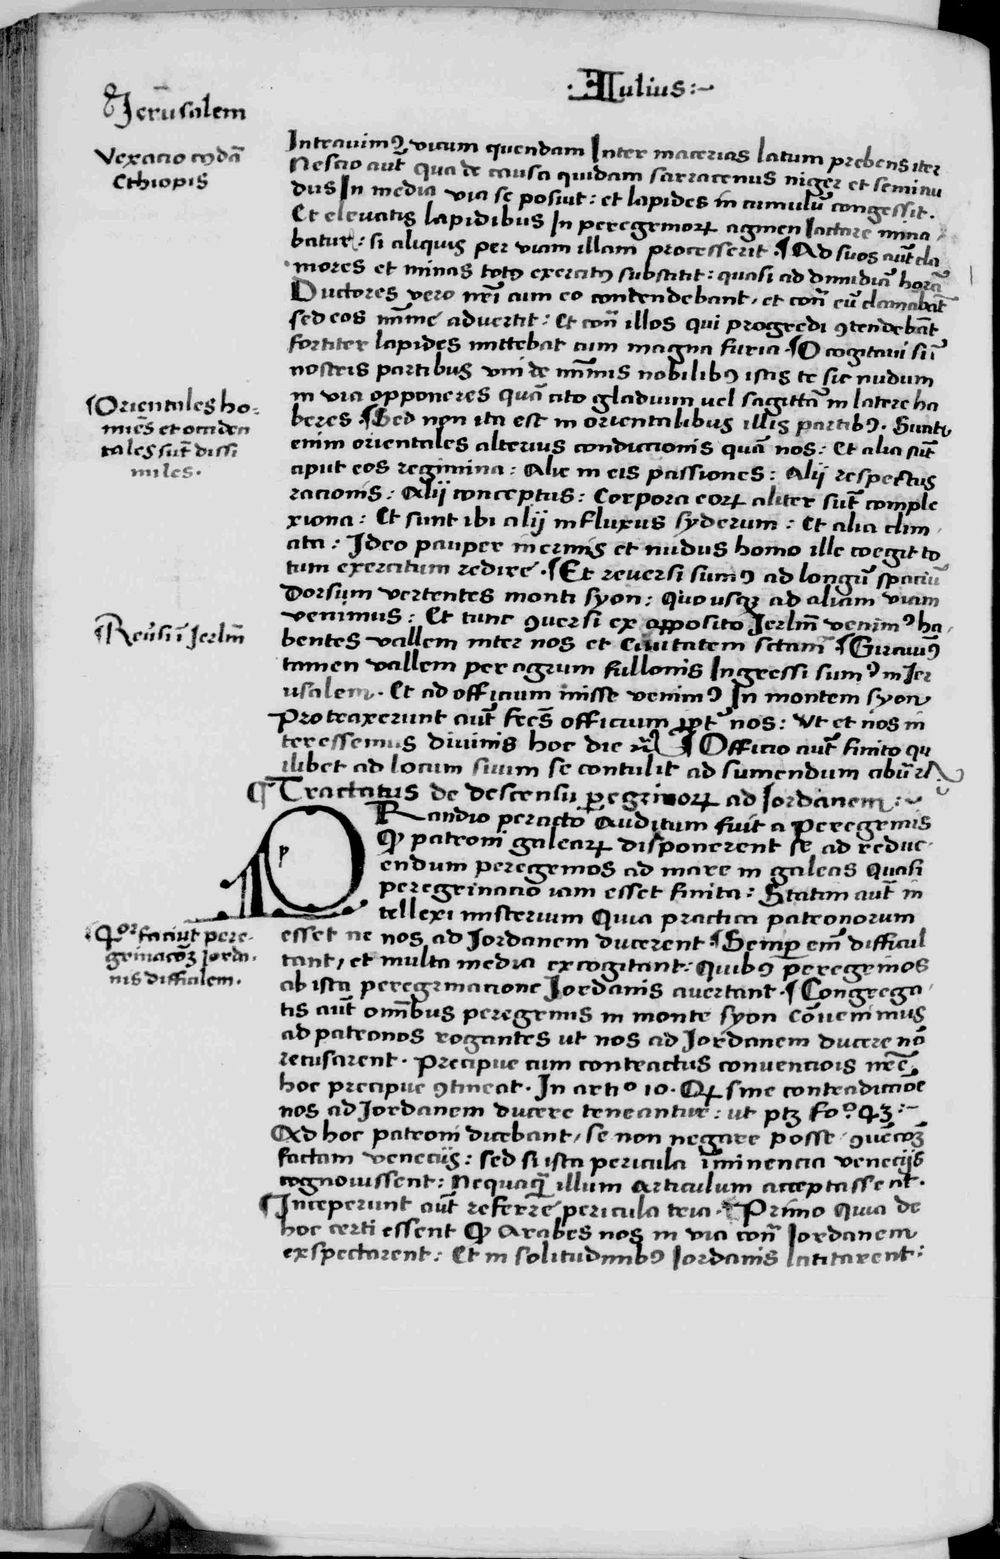 ·Iulius:~
Jerusalem
Vexacio cuiusdā
Ethiopis
Intravimꝰ vicum quendam Inter macerias latum prebens iter
Nescio aut̄ qua de causa quidam sarracenus niger et seminu
dus In media via se posuit: et lapides in cumulū congessit.
Et elevatis lapidibus In peregrinoꝝ agmen Iactare mina
batur: si aliquis per viam illam processerit ¶ Ad suos aut̄ cla
mores et minas totꝰ exercitꝰ substitit: quasi ad dimidiā horā
Ductores vero nr̄i cum eo contendebant, et con̄ eū clamabāt
sed eos mi̅me advertit: Et con̄ illos qui progredi ꝯtendebāt
fortiter lapides mittebat cum magna furia ¶ O cogitavi si ī
nostris partibus vni de mi̅mis nobilibꝰ istis te sic nudum
in via opponeres quā cito gladium vel sagittā in latere ha
beres ¶ Sed non ita est in orientalibus illis partibꝰ. Sunt
enim orientales alterius condiccionis quā nos: Et alia sūt
aput eos regimina: Alie in eis passiones: Alij respectus
racionis: Alij conceptus: Corpora eoꝝ aliter sūt comple
xiona: Et sunt ibi alij influxus syderum: Et alia clim
ata: Ideo pauper inermis et nudus homo ille coegit to
tum exercitum redire. ¶ Et reversi sumꝰ ad longū spaciū
Dorsum vertentes monti syon: Quo usqꝫ ad aliam viam
venimus: Et tunc ꝯversi ex opposito Jerlm̄ venimꝰ ha
bentes vallem inter nos et Civitatem sctam̄ ¶ Giravimꝰ
tamen vallem per agrum fullonis Ingressi sumꝰ in Jer
usalem. Et ad officium misse venimꝰ In montem syon
Protraxerunt aut̄ fr̄es officium ꝓpt̄ nos: Vt et nos in
teressemus divinis hoc die ¶ Officio aut̄ finito qu
ilibet ad locum suum se contulit ad sumendum cibū
¶ Orientales ho=
mie̅s et occiden
tales sūt dissi
miles.
¶ Rev̄si ī Jerlm̄
¶ Tractatus de descensu ꝑegrinoꝝ ad Jordanem:~
PRandio peracto Auditum fuit a Peregrinis
Ꝙ patroni galeaꝝ disponerent se ad reduc
endum peregrinos ad mare in galeas Quasi
peregrinacio iam esset finita: Statim aut̄ in
tellexi misterium Quia practica patronorum
esset ne nos ad Jordanem ducerent ¶ Semꝑ em̄ difficul
tant, et multa media excogitant: Quibꝰ peregrinos
ab ista peregrinacione Jordanis avertant ¶ Congrega
tis aut̄ om̄ibus peregrinis in monte syon cōvenimus
ad patronos rogantes ut nos ad Jordanem ducere nō
recusarent. Precipue cum contractus convencionis nr̄e
hoc precipue ꝯtineat. In artiᵒ 10. Ꝙ sine contradiccione
nos ad Jordanem ducere teneantur: ut ptꝫ foᵒ. 43:~
Ad hoc patroni dicebant, se non negare posse ꝯvēcōꝫ
factam venecijs: sed si ista pericula īminencia venecijs
cognovissent: Nequaq̄ illum Articulum acceptassent.
¶ Inceperunt aut̄ referre pericula tria. ¶ Primo Quia de
hoc certi essent Ꝙ Arabes nos in via con̄ Jordanem
exspectarent: Et in solitudinibꝰ Jordanis latitarent:
¶ Qʳ faciūt pere-
grinacōꝫ Jorda
nis difficilem.